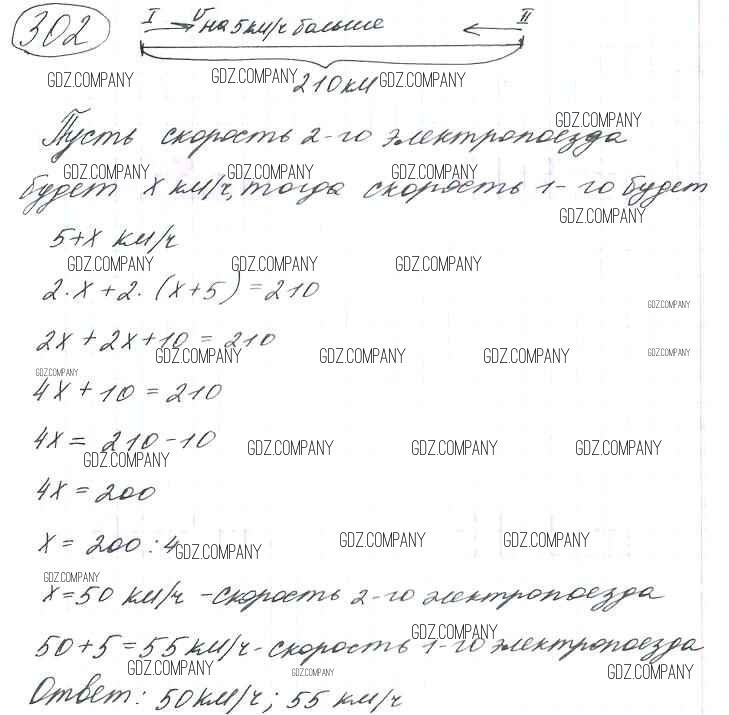 302 I υ на 5 км/ч больше II
GDZ.COMPANY GDZ.COMPANY 210 км GDZ.COMPANY
GDZ.COMPANY
Пусть скорость 2-го электропоезда
GDZ.COMPANY GDZ.COMPANY GDZ.COMPANY
будет x км/ч, тогда скорость 1-го будет
GDZ.COMPANY
5+x км/ч
GDZ.COMPANY GDZ.COMPANY GDZ.COMPANY
2·x+2·(x+5)=210
GDZ.COMPANY
2x+2x+10=210
GDZ.COMPANY GDZ.COMPANY GDZ.COMPANY GDZ.COMPANY
GDZ.COMPANY
4x+10=210
4x=210-10
GDZ.COMPANY GDZ.COMPANY GDZ.COMPANY
GDZ.COMPANY
4x=200
x=200:4
GDZ.COMPANY GDZ.COMPANY GDZ.COMPANY
GDZ.COMPANY
x=50 км/ч -скорость 2-го электропоезда
GDZ.COMPANY
50+5=55 км/ч-скорость 1-го электропоезда
GDZ.COMPANY GDZ.COMPANY GDZ.COMPANY
Ответ: 50км/ч; 55 км/ч